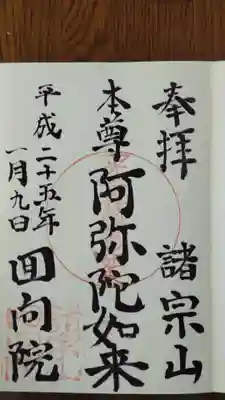 奉拝　諸宗山
本尊　阿弥陀如来
平成二十五年
一月九日
回向院